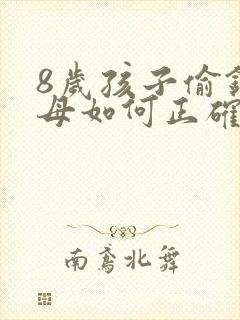 8歲孩子偷
母如何正確
南鳶北舞